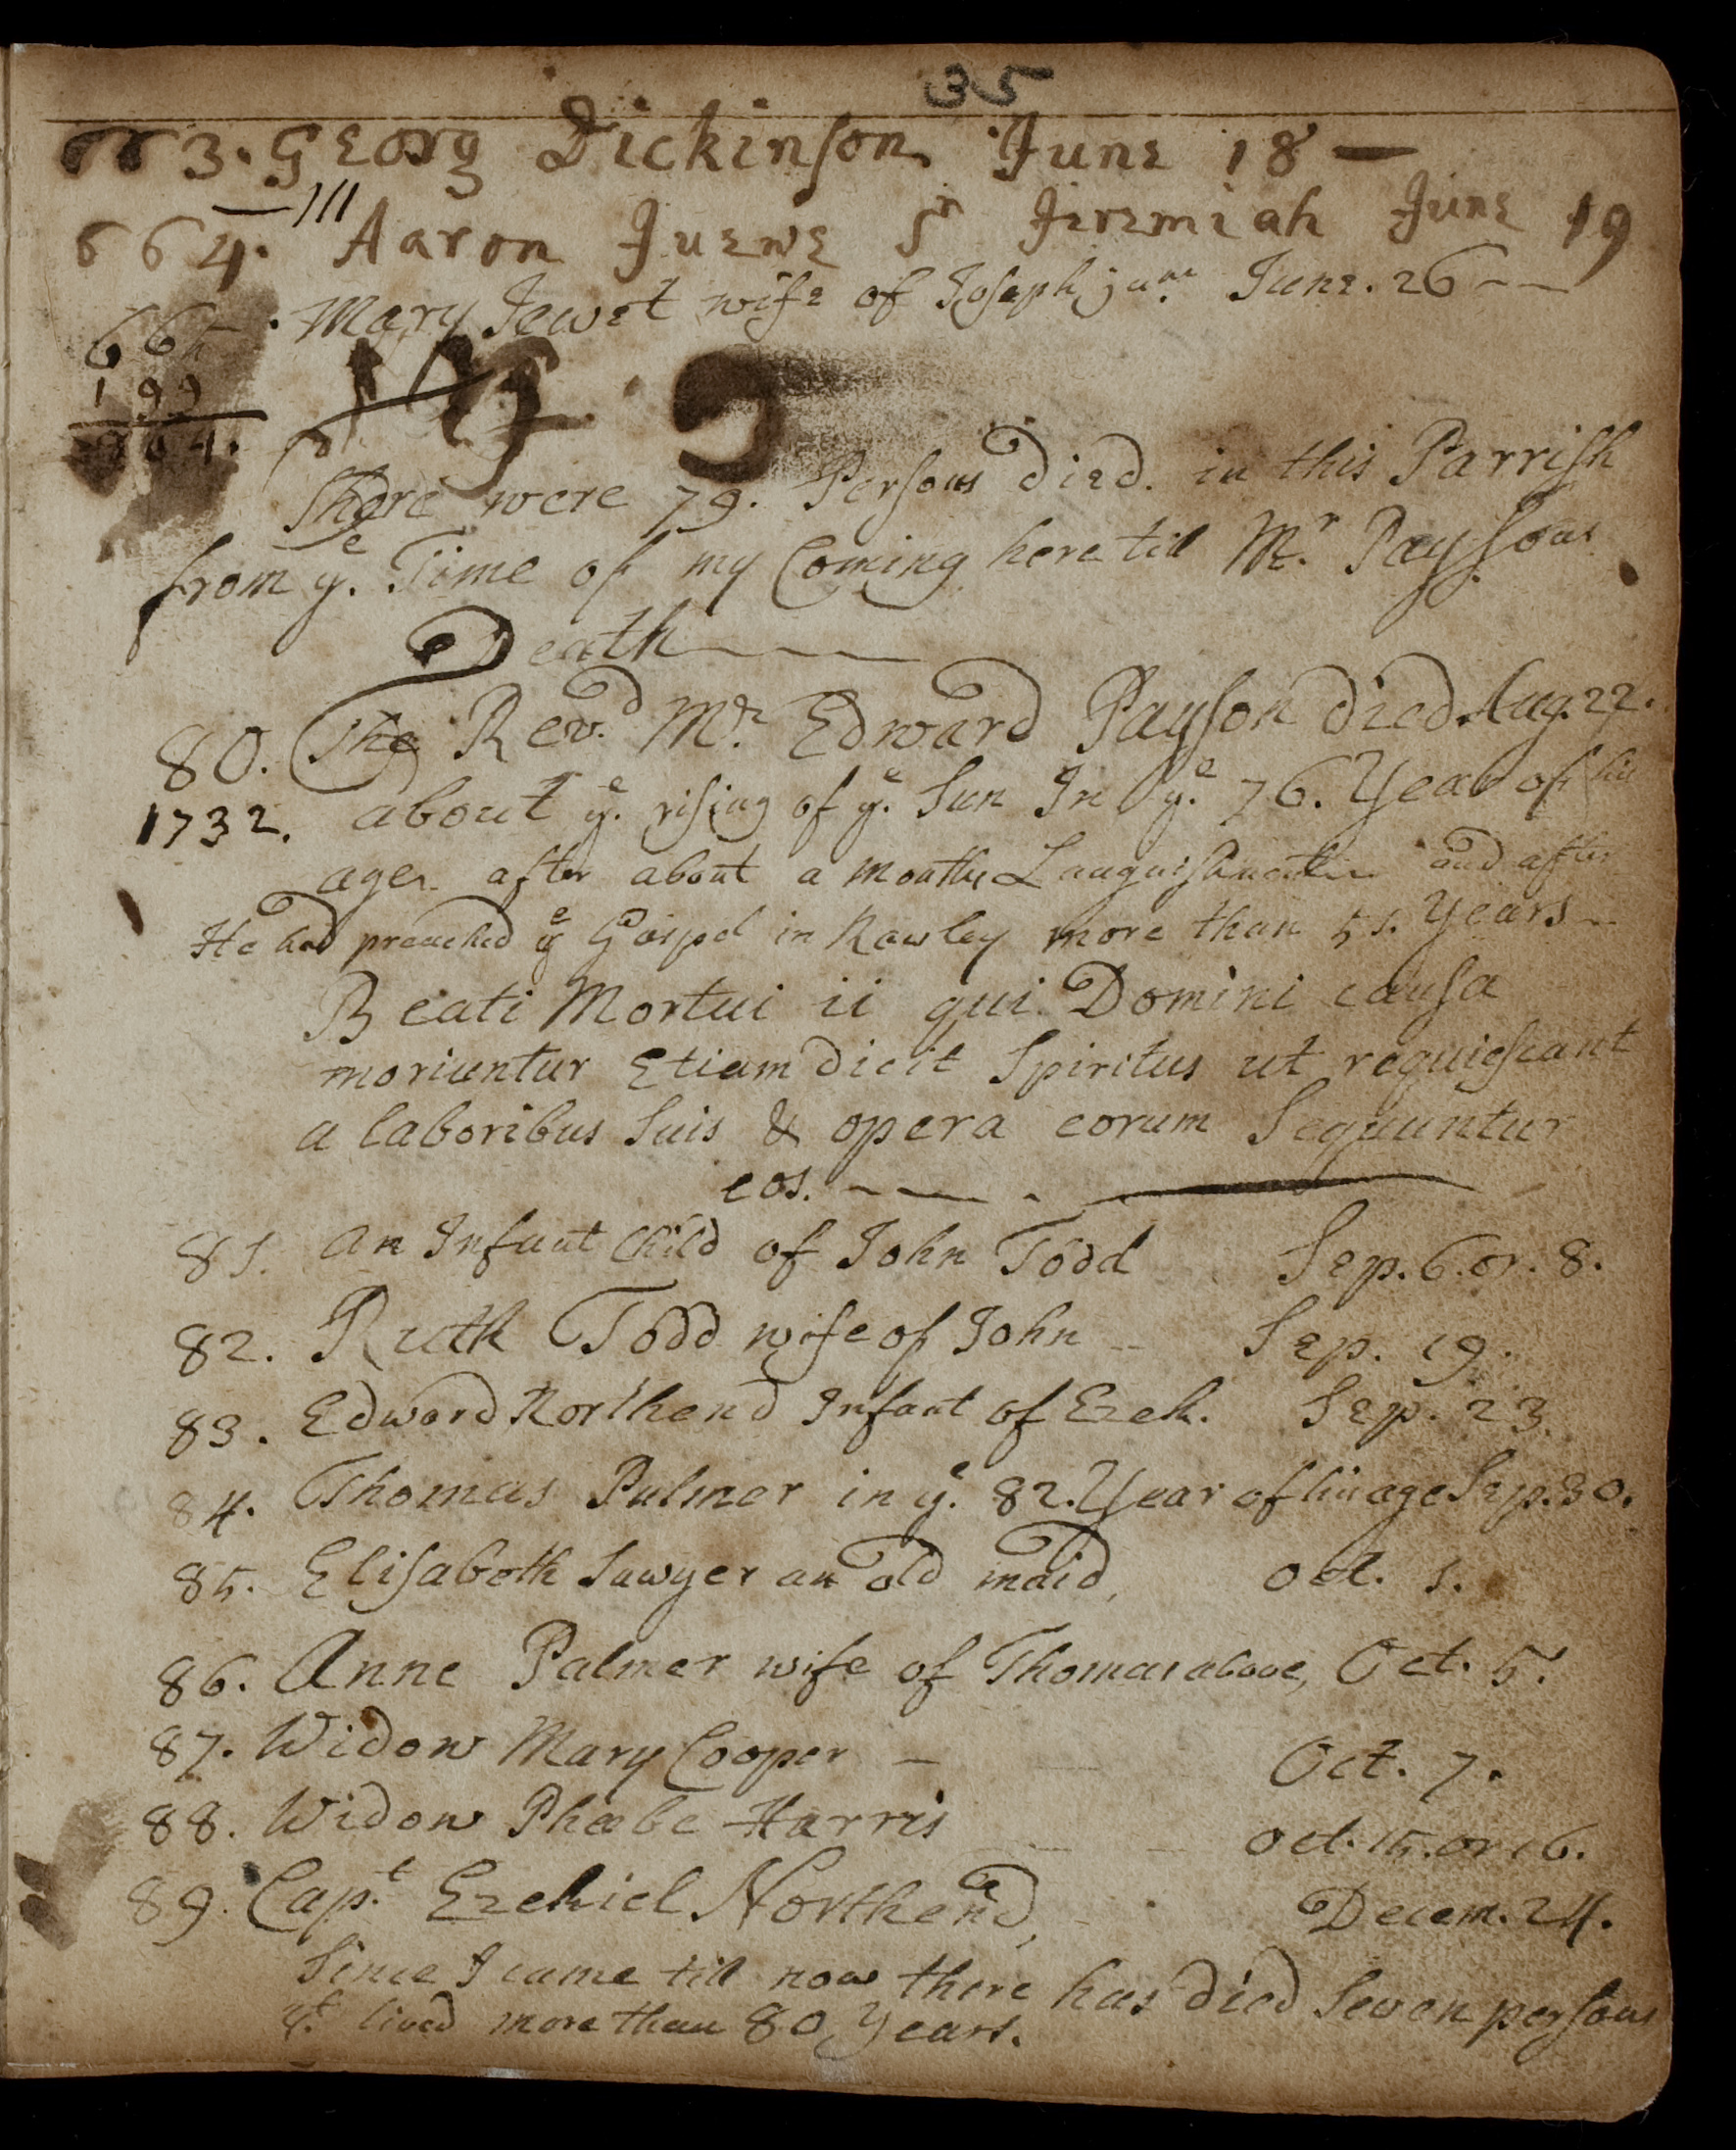 35
3. Georg Dickinson June 18 —
111
664. Aaron Juewe Sr Jeremiah June 19
665. Mary Jewet wife of Joseph junr June. 26 — —
199
864.
There were 79. Persons Died. in this Parrish
from ye. Time of my Coming here till Mr. Paysons
Death — — —
80. The Revd. Mr. Edward Payson Died Aug. 22.
1732. about ye. rising of ye. Sun In ye. 76. Year of his
age. after about a months Languishment and after
He had preached ye Gospel in Rowley more than 51. Years —
Beati Mortui ii qui Domini causa
moriuntur Etiam Dicit Spiritus ut requiescant
a laboribus Suis & opera eorum Sequuntur
eos. — — — . —
81. An Infant Child of John Todd Sep. 6. or. 8.
82. Ruth Todd wife of John — Sep. 19.
83. Edward Northend Infant of Ezek. Sep. 23.
84. Thomas Palmer in ye. 82. Year of his age Sep. 30.
85. Elisabeth Sawyer an old maid, Oct. 1.
86. Anne Palmer wife of Thomas above, Oct. 5.
87. Widow Mary Cooper — Oct. 7.
88. Widow Phœbe Harris Oct. 15. or 16.
89. Capt. Ezekiel Northend, Decem. 24.
Since I came till now there has died Seven persons
yt. lived more than 80 Years.